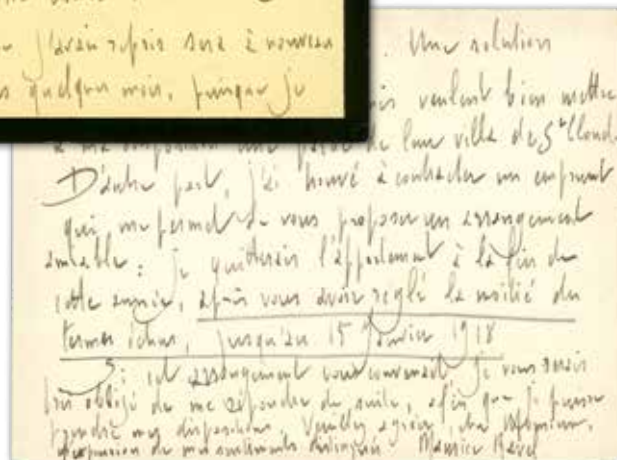 j'avais repris à nouveau
quelques mois, puisque je
. Une solution
veulent bien mettre
à ma disposition une partie de leur villa de St Cloud.
D'autre part, j'ai trouvé à contracter un emprunt
qui me permet de vous proposer un arrangement
amiable : je quitterais l'appartement à la fin de
cette année, après vous avoir réglé la moitié des
termes échus, jusqu'au 15 Janvier 1918
Si cet arrangement vous convenait, je vous serais
bien obligé de me répondre de suite, afin que je puisse
prendre mes dispositions. Veuillez agréer, cher Monsieur,
l'expression de mes sentiments distingués Maurice Ravel